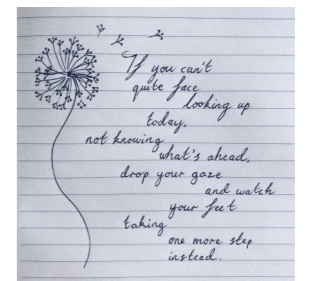 If you can't
quite face
looking up
today,
not knowing
what's ahead,
drop your gaze
and watch
your feet
taking
one more step
instead.